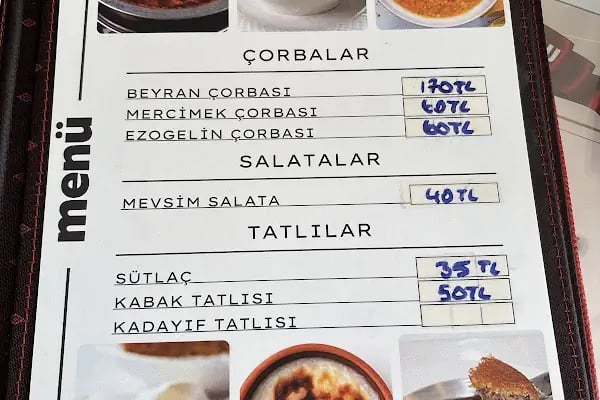 menü
ÇORBALAR
BEYRAN ÇORBASI 170TL
MERCİMEK ÇORBASI 60TL
EZOGELİN ÇORBASI 60TL
SALATALAR
MEVSİM SALATA 40TL
TATLILAR
SÜTLAÇ 35 TL
KABAK TATLISI 50TL
KADAYIF TATLISI